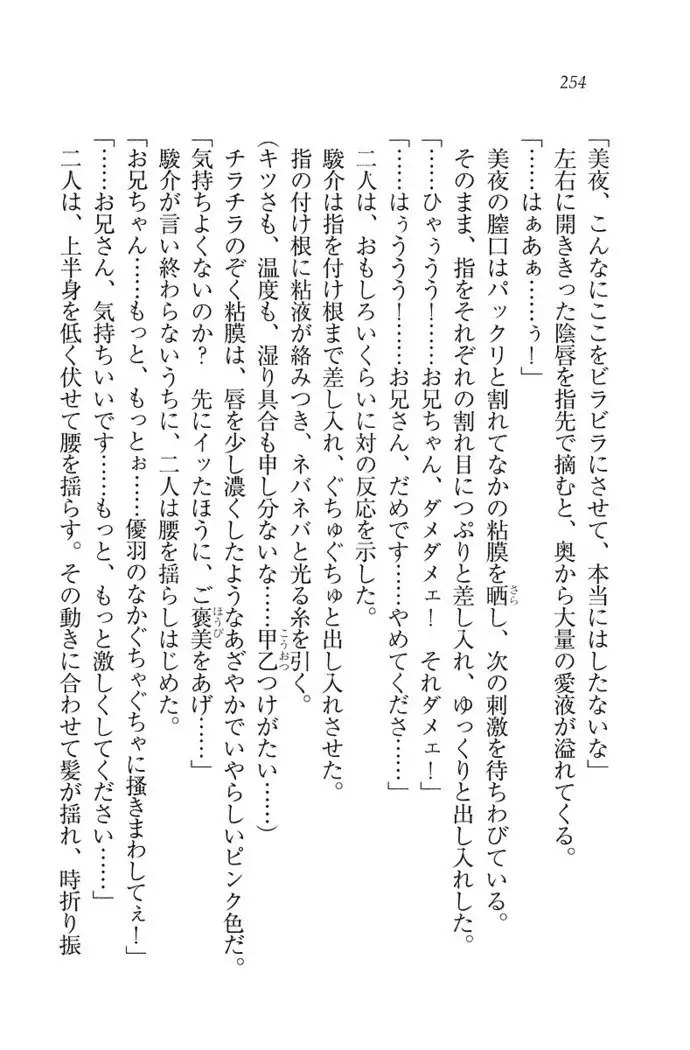 254
「美夜、こんなにここをビラビラにさせて、本当にはしたないな」
左右に開ききった陰唇を指先で摘むと、奥から大量の愛液が溢れてくる。
「……はぁあぁ……ぅ！」
美夜の膣口はパックリと割れてなかの粘膜を晒し、次の刺激を待ちわびている。
そのまま、指をそれぞれの割れ目につぷりと差し入れ、ゆっくりと出し入れした。
「……ひゃぅうう！……お兄ちゃん、ダメダメェ！　それダメェ！」
「……はぅううう！……お兄さん、だめです……やめてくださ……」
二人は、おもしろいくらいに対の反応を示した。
駿介は指を付け根まで差し入れ、ぐちゅぐちゅと出し入れさせた。
指の付け根に粘液が絡みつき、ネバネバと光る糸を引く。
(キツさも、温度も、湿り具合も申し分ないな……甲乙つけがたい……)
チラチラのぞく粘膜は、唇を少し濃くしたようなあざやかでいやらしいピンク色だ。
「気持ちよくないのか？　先にイッたほうに、ご褒美をあげ……」
駿介が言い終わらないうちに、二人は腰を揺らしはじめた。
「お兄ちゃん……もっと、もっとぉ……優羽のなかぐちゃぐちゃに掻きまわしてぇ！」
「……お兄さん、気持ちいいです……もっと、もっと激しくしてください……」
二人は、上半身を低く伏せて腰を揺らす。その動きに合わせて髪が揺れ、時折り振